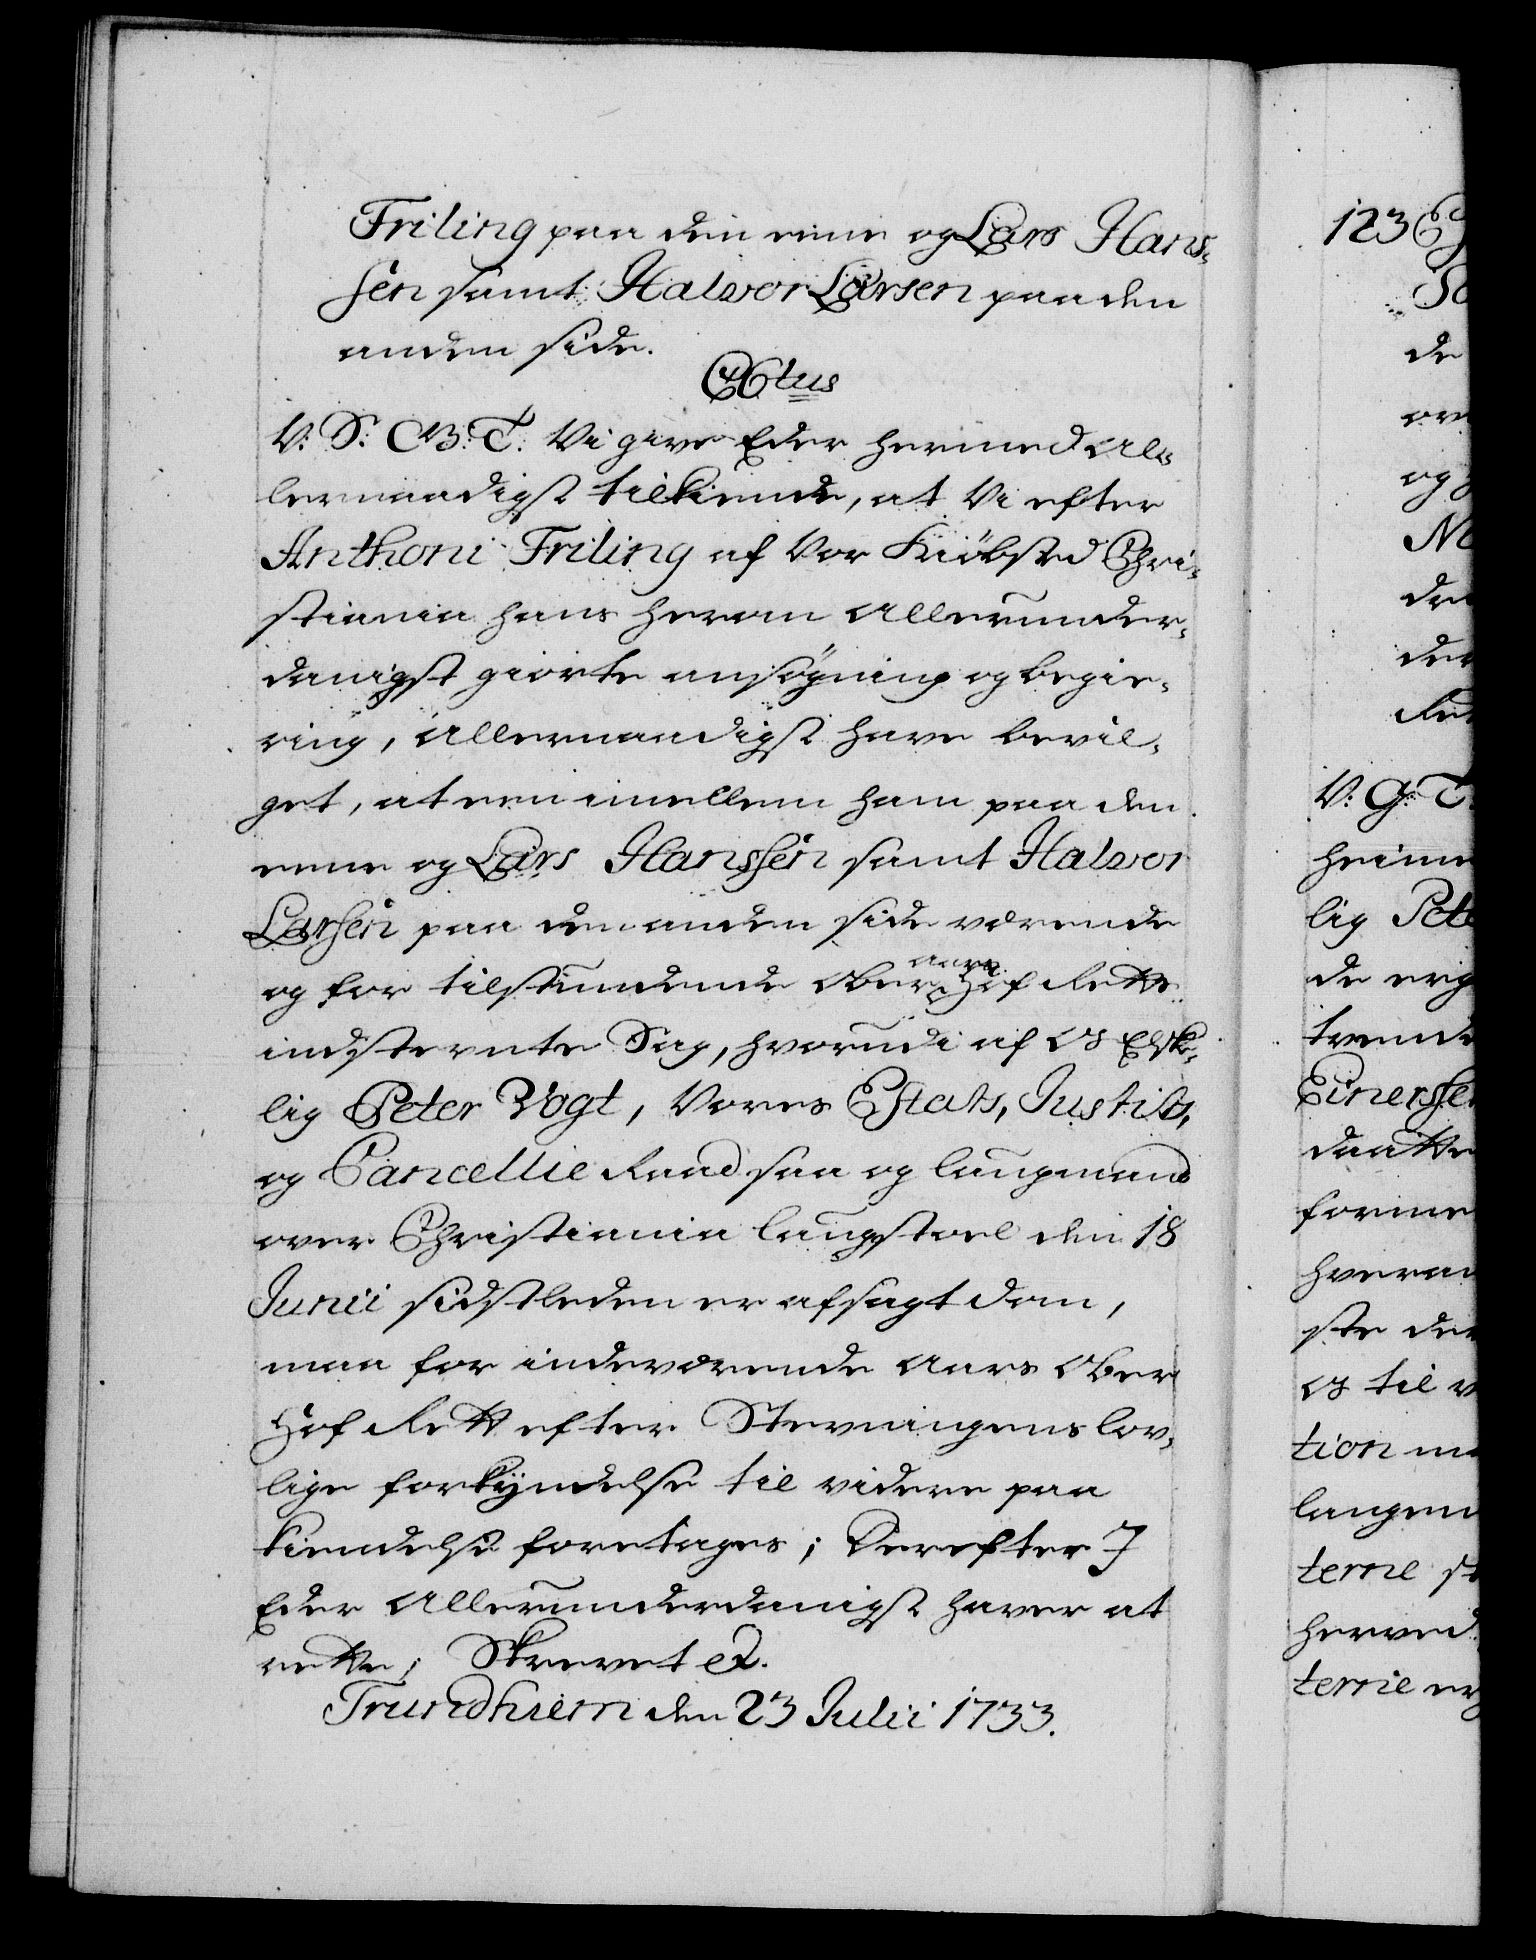 Friling paa den eene og Lars Hans-
sen samt Halvor Larsen paa den
anden side.
V: S: C B: T: Vi give Eder hermed Al-
lernaadigst tilkiende, at Vi efter
Anthoni Friling af Vor Kiöbsted Chri-
stiania hans herom Allerunder-
danigst giorte ansøgning og begie-
ring, Allernaadigst have bevil-
get, at een imellem ham paa den
eene og Lars Hanssen samt Halvor
Larsen paa den anden side værende
og for tilstundende Ober Hof Rette
indstevnte Sag, hvorudi af Os Elske-
lig Peter Vogt, Vores Estats, Justits,
og Cancellie Raad saa og laugmand
over Christiania laugstoel den 18
Junii sidstleden er afsagt dom,
maa for indeværende Aars Ober
Hof Rett efter Stevningens lov-
lige forkyndelse til videre paa
kiendelse foretages; Derefter I
Eder Allerunderdanigst haver at
rette; Skrevet
Trundhiem den 23 Julii 1733.
123
de
og
V: G: T:
lig Pet
de erg
Einerssen
forme
ste de
Os til
tion
langen
terne
herved
terne